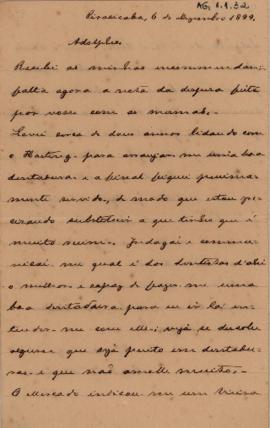 AG. 1.1.32
Piracicaba, 6 de Dezembro 1899.
Adolpho.
Recebi as minhas incommendas,
falta agora a nota da despeza feita
por voce com as mesmas.
Levei cerca de dous annos lidando com
o Hartung para arranjar-me uma boa
dentadura e afinal fiquei pessima-
mente servido, de modo que estou pre-
cizando substituir a que tinha que é
muito ruim. Indagai e commu-
nicai-me qual é dos dentistas d'ahi
o melhor e capaz de fazer-me uma
boa dentadura para eu ir lá in-
tender-me com elle; veja se descobre
algum que seja perito em dentadu-
ras e que não amolle muito.
O Mercado indicou-me um Vieira